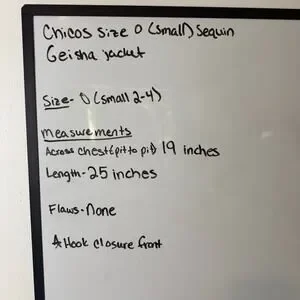 Chicos Size 0 (small) Sequin
Geisha jacket
Size- 0 (small 2-4)
measurements
Across chest (pit to pit) 19 inches
Length- 25 inches
Flaws- None
* Hook closure front